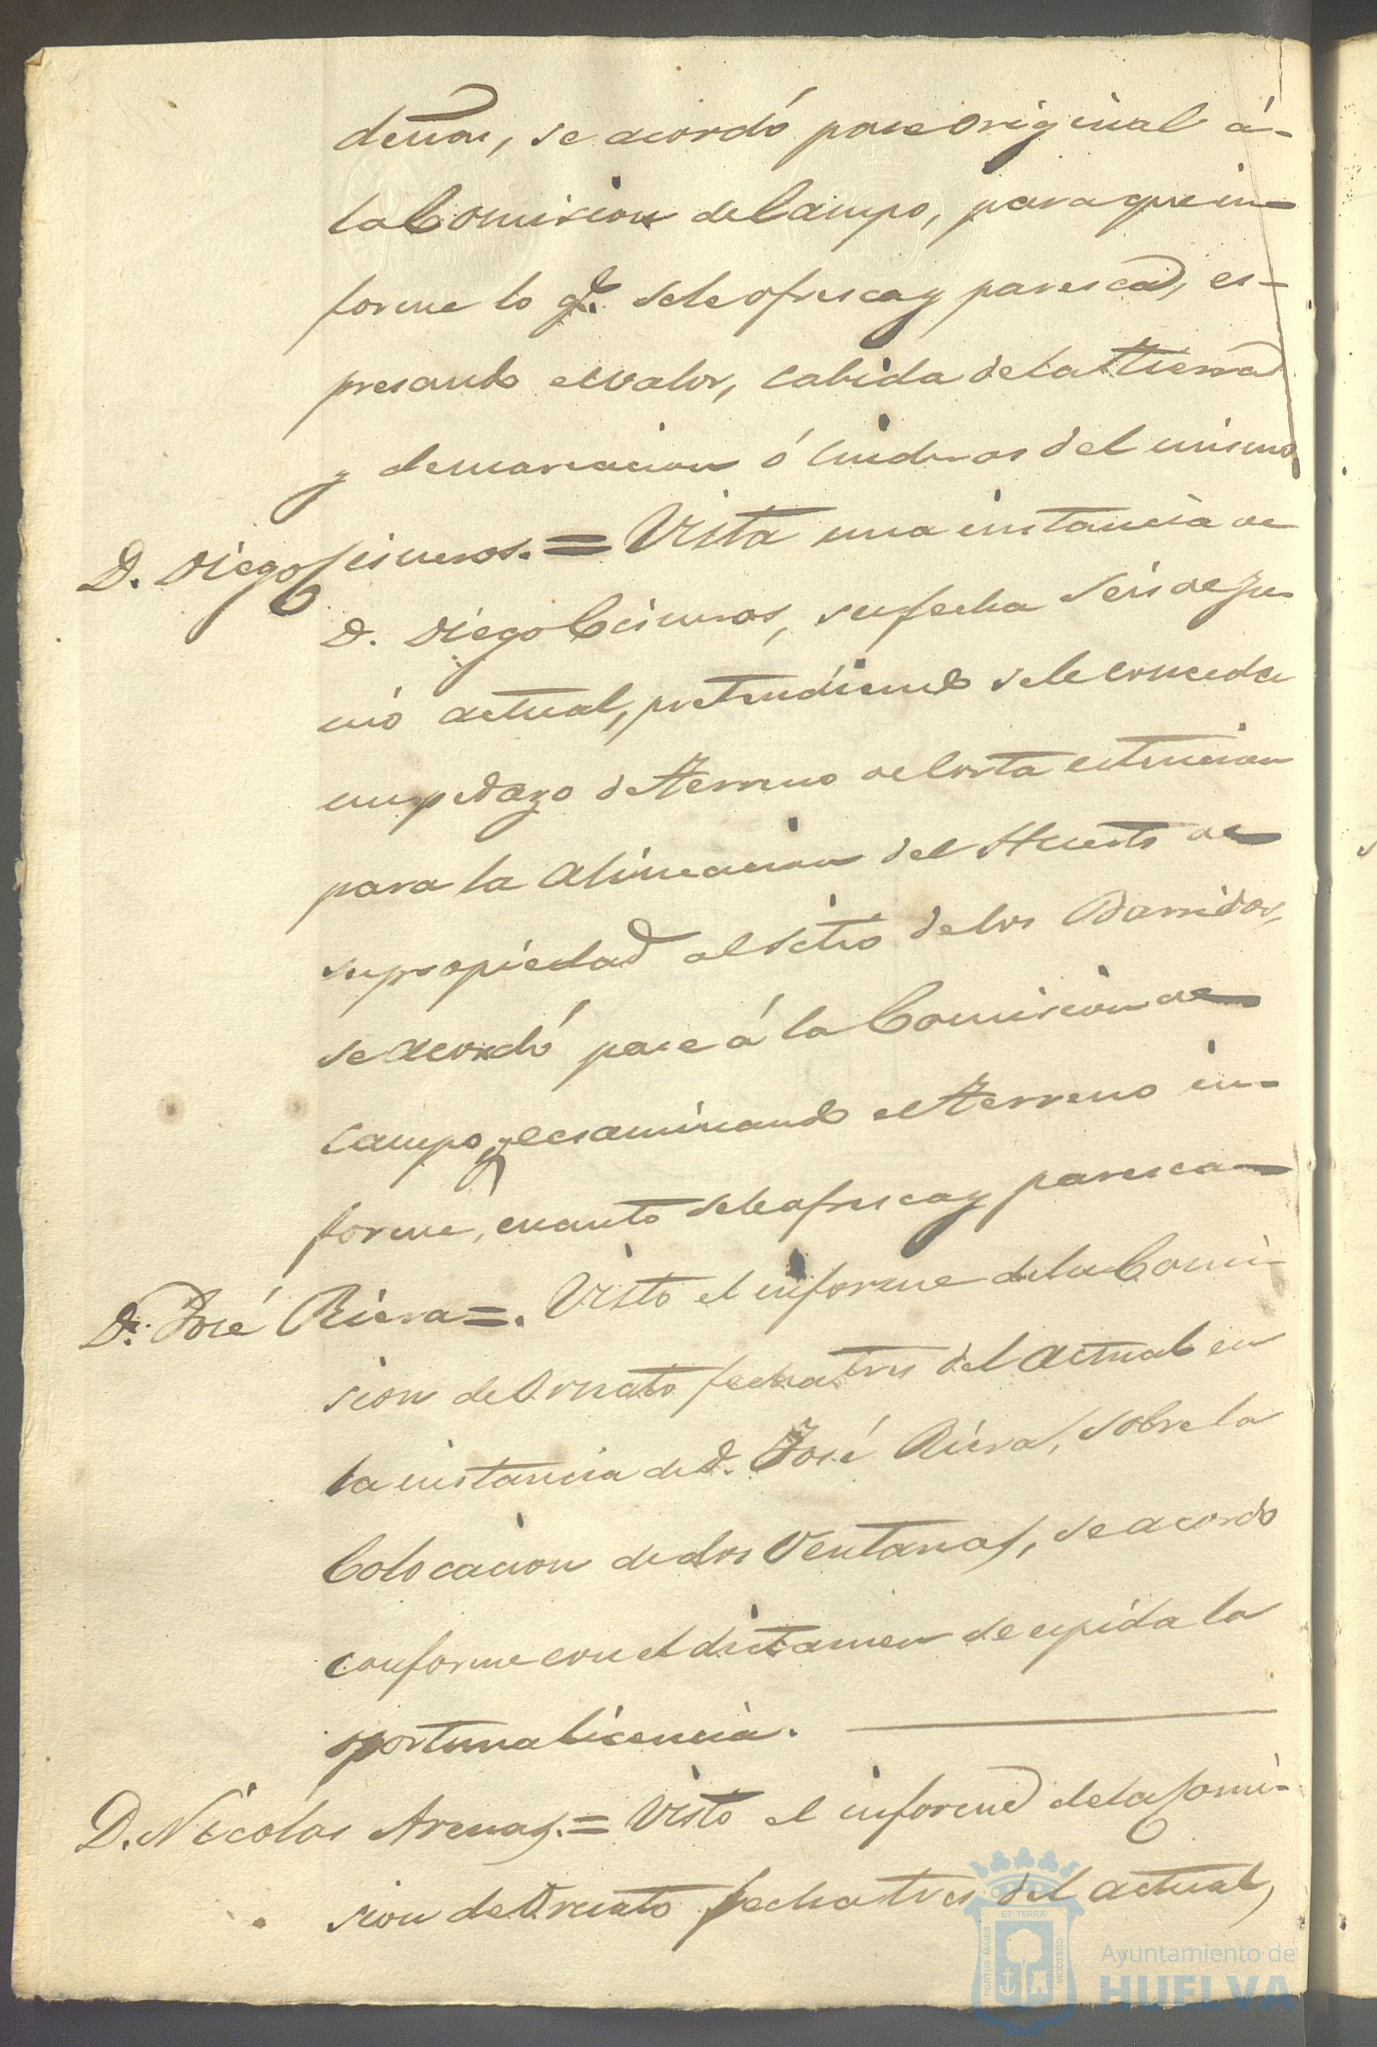 se acordó pase original á
la Comision de Campo, para que in-
forme lo q.e se le ofresca y paresca, es-
presando el valor, cabida de la tierra
y demarcacion ó linderos del mismo.
D. Diego Cisneros. = Vista una instancia de
D. Diego Cisneros, su fecha seis de Ju-
nio actual, pretendiendo se le conceda
un pedazo de terreno de corta estencion
para la alineacion del Huerto de
su propiedad al sitio de los
se acordó pase á la Comision de
Campo y ecsaminando el terreno in-
forme, cuanto se le ofresca y paresca
D. José Riera =. Visto el informe de la Comi-
sion de Ornato fecha tres del actual en
la instancia de D. José Riera, sobre la
Colocacion de dos Ventanas, se acordó
conforme con el dictamen se espida la
oportuna licencia.
D. Nicolas Arenas. = Visto el informe de la Comi-
sion de Ornato fecha tres del actual,
PORTUS MARIS
ET TERRÆ
CUSTODIA
Ayuntamiento de
HUELVA